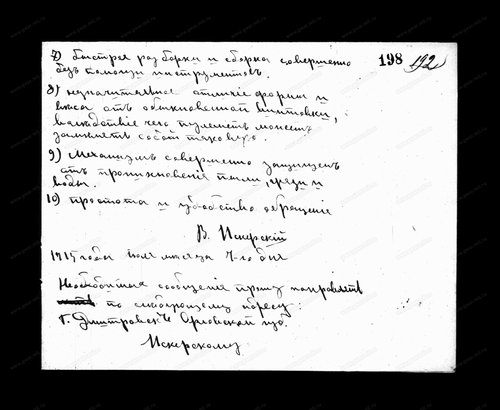 7) быстрая разборка и сборка совершенно
безъ помощи инструментовъ.
198 192
8) незначительное отличіе формы и
веса отъ обыкновенной винтовки,
вследствіе чего пулеметъ можетъ
заменять собой таковую.
9) механизмъ совершенно защищенъ
отъ проникновенія пыли, грязи и
воды.
10) простота и удобство обращенія
В. Искрскій
1915 года мая месяца 4-го дня
Необходимыя сообщенія прошу направлять
по следующему адресу:
г. Дмитровскъ Орловской губ.
Искрскому